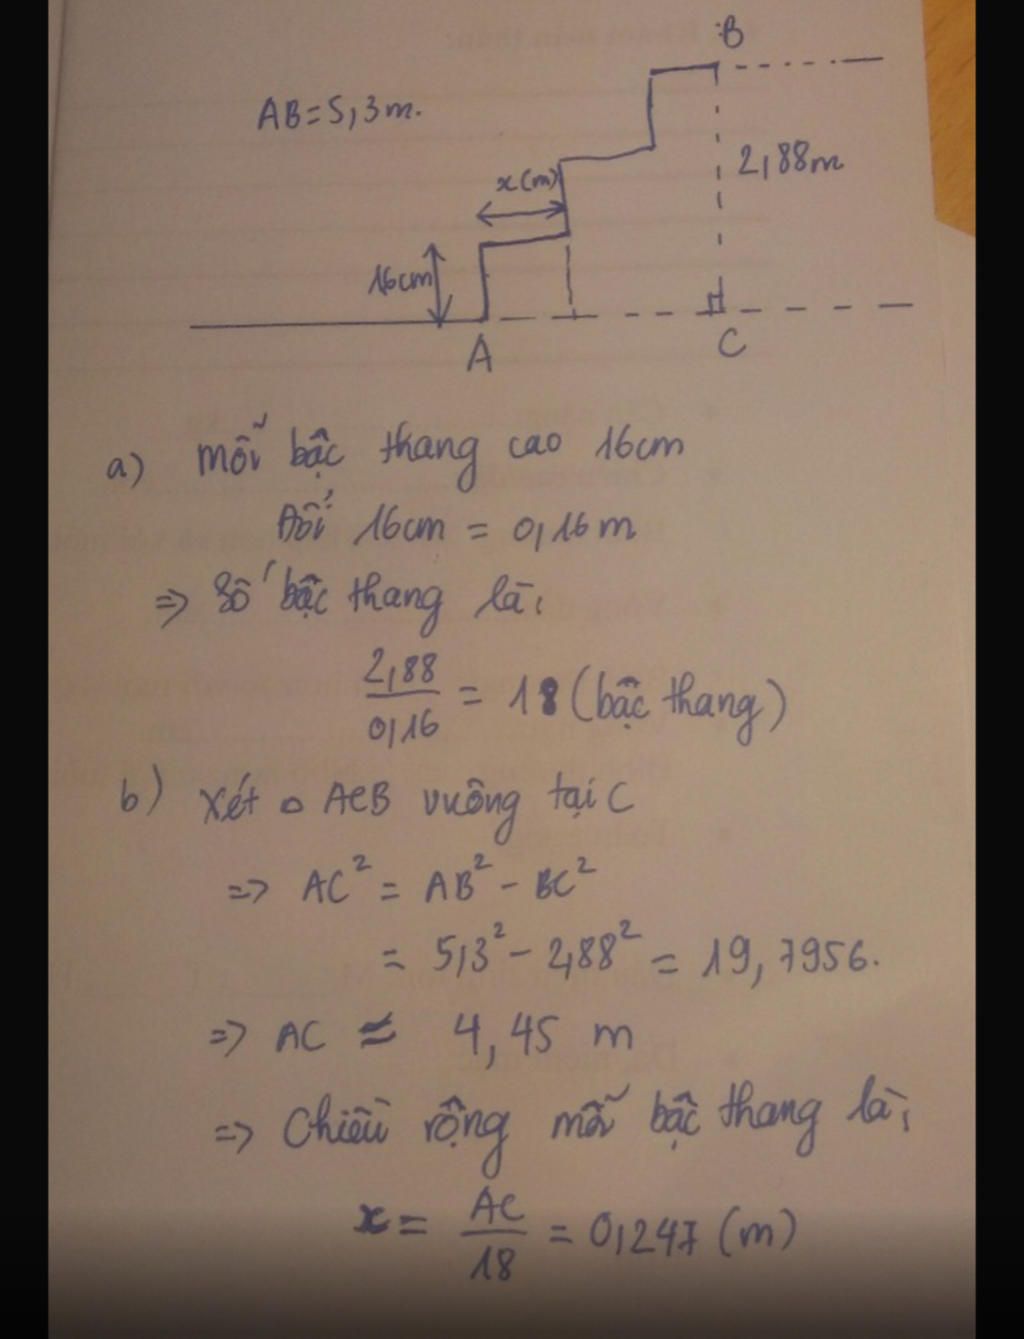 B
AB = 5,3m.
2,88m
x(m)
16cm
A
C
a) Mỗi bậc thang cao 16cm
Đổi 16cm = 0,16m
=> Số bậc thang là:
2,88/0,16 = 18 (bậc thang)
b) Xét △ ACB vuông tại C
=> AC² = AB² - BC²
= 5,3² - 2,88² = 19,7956.
=> AC ≈ 4,45 m
=> Chiều rộng mỗi bậc thang là:
x = AC/18 = 0,247 (m)